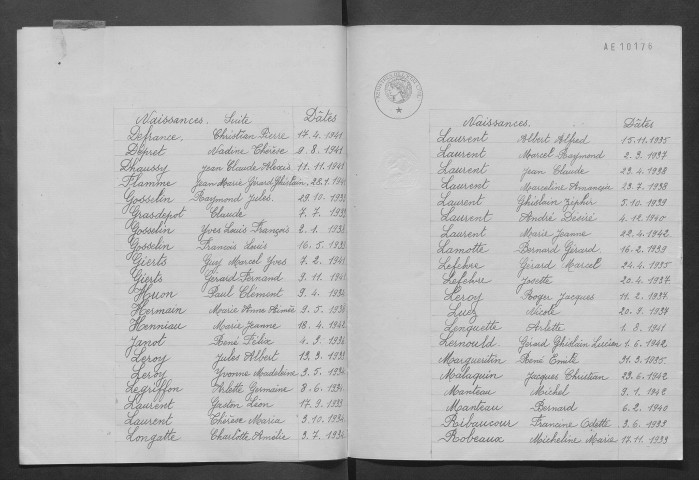 Naissances. Suite Dâtes
Defrance. Christian Pierre 17. 4. 1941
Dépret Nadine Thérèse 9. 8. 1941
Dhaussy Jean Claude Alexis 11. 11. 1941
Flamme Jean Marie Gérard Ghislain. 28. 1. 194
Gosselin Raymond Jules. 29. 10. 193
Grasdepot Claude 7. 7. 193
Gosselin Yves Louis François 2. 1. 193
Gosselin François Louis 16. 5. 193
Gierts Guy Marcel Yves 7. 2. 1941
Gierts Gérard Fernand 9. 11. 194
Huon Paul Clément 9. 4. 193
Hermain Marie Anne Aimée 9. 5. 193
Henniau Marie Jeanne 18. 4. 194
Janot René Félix 4. 3. 193
Leroy Jules Albert 13. 3. 193
Leroy Yvonne Madeleine 3. 5. 193
Legriffon Arlette Germaine 8. 6. 193
Laurent Gaston Léon 17. 9. 193
Laurent Thérèse Maria 3. 10. 193
Longatte Charlotte Amélie 3. 7. 193
AE 10176
Naissances. Dâtes
Laurent Albert Alfred 15. 11. 1935
Laurent Marcel Raymond 2. 3. 1937
Laurent Jean Claude 23. 4. 1938
Laurent Marceline 23. 7. 1938
Laurent Ghislain Zéphir 5. 10. 1939
Laurent André Désiré 4. 12. 1940
Laurent Marie Jeanne 22. 4. 1942
Lamotte Bernard Gérard 16. 2. 1939
Lefebvre Gérard Marcel 24. 4. 1935
Lefebvre Josette 20. 4. 1937
Leroy Roger Jacques 11. 2. 1937
Luez Nicole 20. 8. 1934
Lenguette Arlette 1. 8. 1941
Lernould Gérard Ghislain Lucien 1. 6. 1942
Margueritin René Emile 31. 3. 1935
Malaquin Jacques Christian 23. 6. 1942
Manteau Michel 9. 1. 1942
Manteau Bernard 6. 2. 1940
Ribaucour Francine Odette 3. 6. 1933
Robeaux Micheline Marie 17. 11. 1933